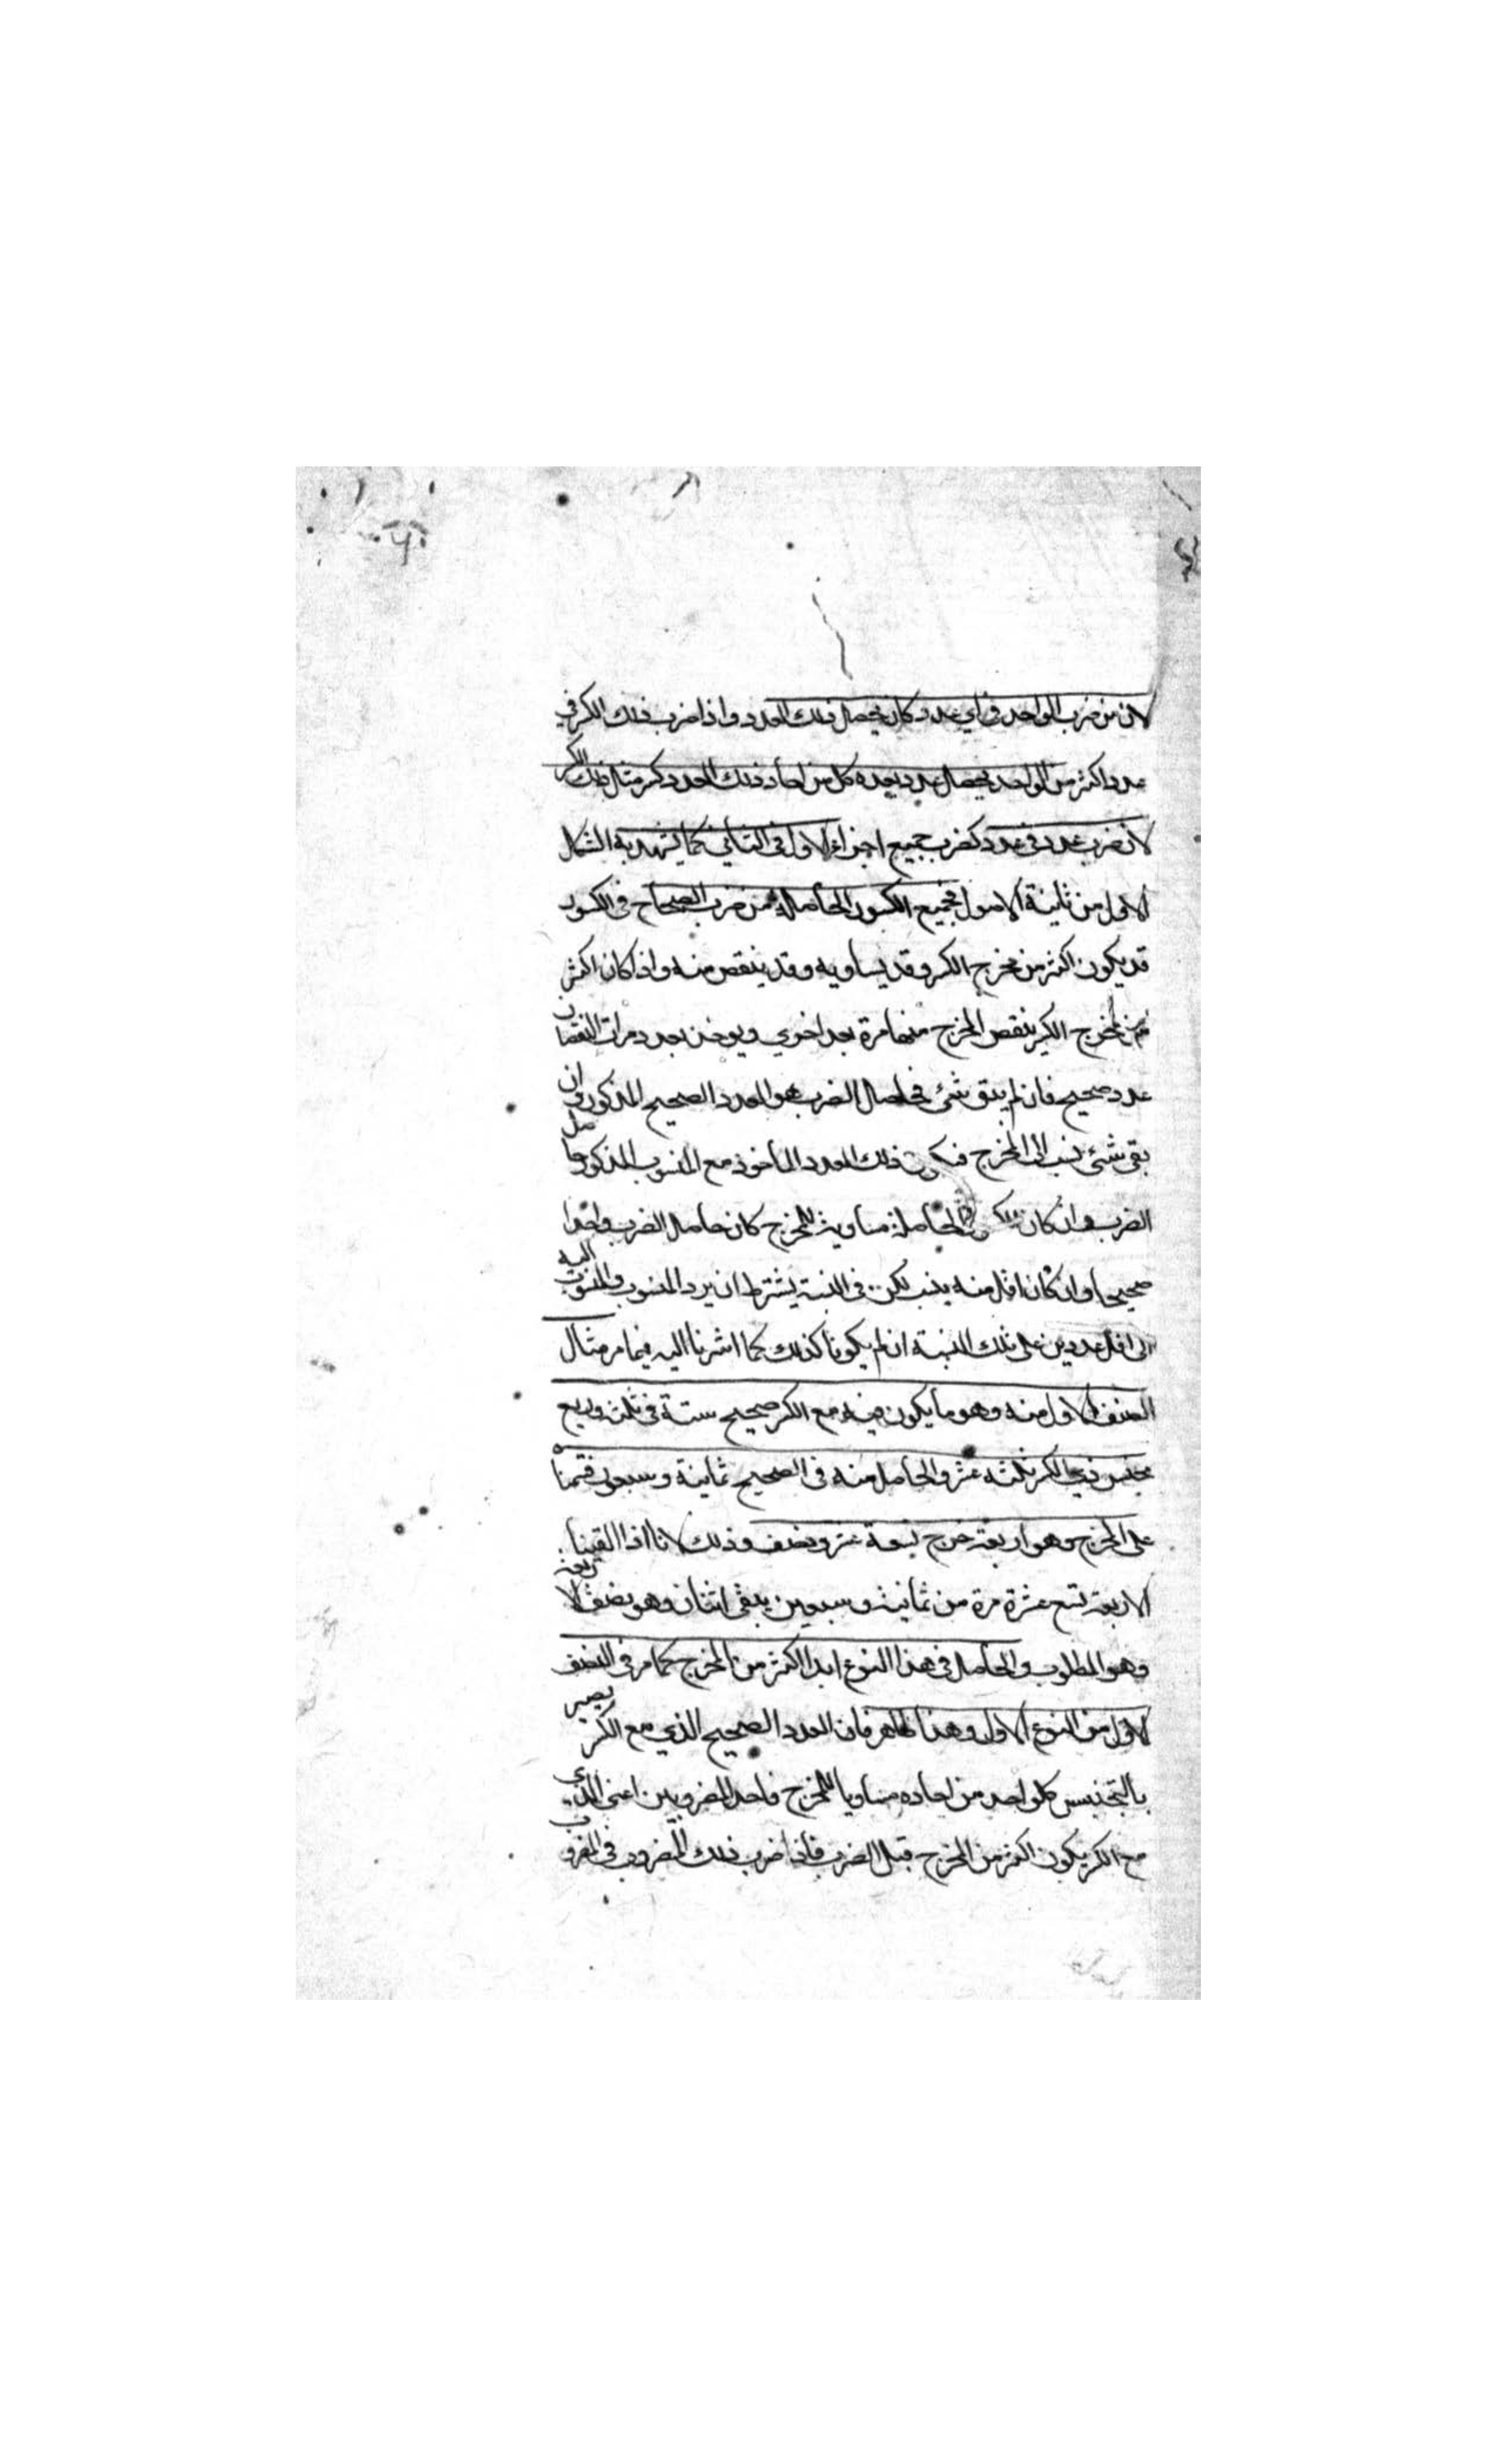 لان من ضرب الواحد في اي عدد كان يحصل ذلك العدد واذا ضرب ذلك الكسر في
عدد اكثر من الواحد يحصل عدد يعده كل من احاد ذلك العدد كسر مثال ذلك الكسر
لان ضرب عدد في عدد كضرب جميع اجزاء الاول في الثاني كما يشهد به الشكل
الاول من ثانية الاصول فجميع الكسور الحاصلة من ضرب الصحاح في الكسور
قد يكون اكثر من مخرج الكسر وقد يساويه وقد ينقص منه واذا كان اكثر
من مخرج الكسر ينقص المخرج منها مرة بعد اخري ويوخذ بعدد مرات النقصان
عدد صحيح فان لم يبق شئ فحاصل الضرب هو العدد الصحيح المذكور وان
بقي شئ نسب الى المخرج فيكون ذلك العدد الماخوذ مع المنسوب المذكور حاصل
الضرب وان كان الحاصلة مساوية للمخرج كان حاصل الضرب واحدا
صحيحا وان كان اقل منه ينسب لكن في النسبة يشترط ان يرد المنسوب والمنسوب اليه
الى اقل عددين على تلك النسبة ان لم يكونا كذلك كما اشرنا اليه فيما مر مثال
الصنف الاول منه وهو ما يكون فيه مع الكسر صحيح ستة في ثلث وربع
مجنس ذي الكسر ثلثة عشر والحاصل منه في الصحيح ثمانية وسبعون قسمناه
على المخرج وهو اربعة خرج تسعة عشر ونصف وذلك لانا اذا القينا
الاربعة تسع عشرة مرة من ثمانية وسبعين يبقى اثنان وهو نصف الاربعة
وهو المطلوب والحاصل في هذا النوع ابدا اكثر من المخرج كما مر في الصنف
الاول من النوع الاول وهذا ظاهر فان العدد الصحيح الذي مع الكسر يصير
بالتجنيس كل واحد من احاده مساويا للمخرج فاحد المضروبين اعني الذي
مع الكسر يكون اكثر من المخرج قبل الضرب فاذا ضرب ذلك المضروب في المضروب